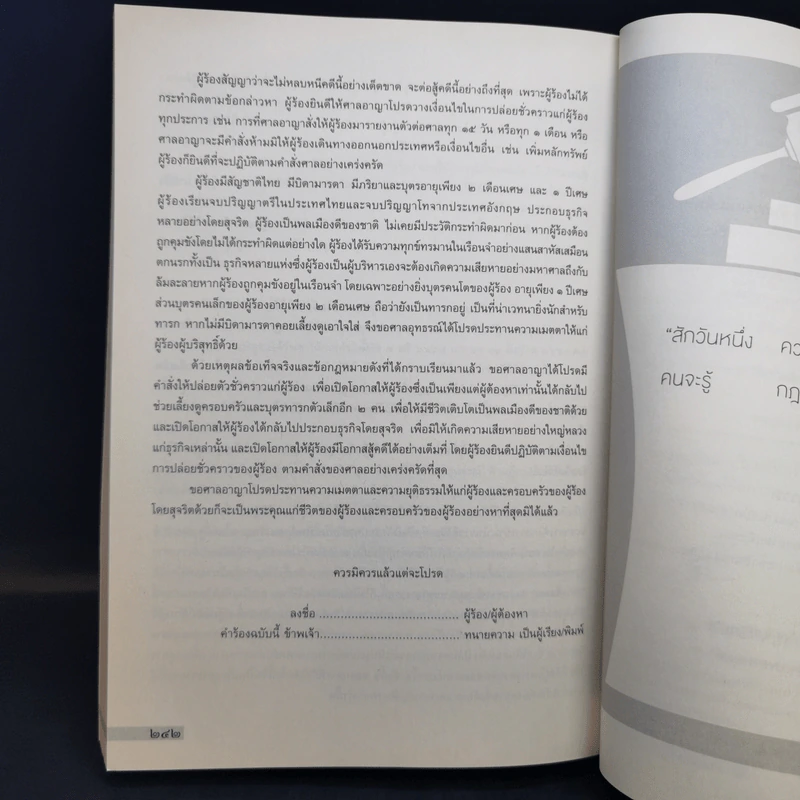 ผู้ร้องสัญญาว่าจะไม่หลบหนีคดีนี้อย่างเด็ดขาด จะต่อสู้คดีนี้อย่างถึงที่สุด เพราะผู้ร้องไม่ได้
กระทำผิดตามข้อกล่าวหา ผู้ร้องยินดีให้ศาลอาญาโปรดวางเงื่อนไขในการปล่อยชั่วคราวแก่ผู้ร้อง
ทุกประการ เช่น การที่ศาลอาญาสั่งให้ผู้ร้องมารายงานตัวต่อศาลทุก ๑๕ วัน หรือทุก ๑ เดือน หรือ
ศาลอาญาจะมีคำสั่งห้ามมิให้ผู้ร้องเดินทางออกนอกประเทศหรือเงื่อนไขอื่น เช่น เพิ่มหลักทรัพย์
ผู้ร้องก็ยินดีที่จะปฏิบัติตามคำสั่งศาลอย่างเคร่งครัด
ผู้ร้องมีสัญชาติไทย มีบิดามารดา มีภริยาและบุตรอายุเพียง ๒ เดือนเศษ และ ๑ ปีเศษ
ผู้ร้องเรียนจบปริญญาตรีในประเทศไทยและจบปริญญาโทจากประเทศอังกฤษ ประกอบธุรกิจ
หลายอย่างโดยสุจริต ผู้ร้องเป็นพลเมืองดีของชาติ ไม่เคยมีประวัติกระทำผิดมาก่อน หากผู้ร้องต้อง
ถูกคุมขังโดยไม่ได้กระทำผิดแต่อย่างใด ผู้ร้องได้รับความทุกข์ทรมานในเรือนจำอย่างแสนสาหัสเสมือน
ตกนรกทั้งเป็น ธุรกิจหลายแห่งซึ่งผู้ร้องเป็นผู้บริหารเองจะต้องเกิดความเสียหายอย่างมหาศาลถึงกับ
ล้มละลายหากผู้ร้องถูกคุมขังอยู่ในเรือนจำ โดยเฉพาะอย่างยิ่งบุตรคนโตของผู้ร้อง อายุเพียง ๑ ปีเศษ
ส่วนบุตรคนเล็กของผู้ร้องอายุเพียง ๒ เดือนเศษ ถือว่ายังเป็นทารกอยู่ เป็นที่น่าเวทนายิ่งนักสำหรับ
ทารก หากไม่มีบิดามารดาคอยเลี้ยงดูเอาใจใส่ จึงขอศาลอุทธรณ์ได้โปรดประทานความเมตตาให้แก่
ผู้ร้องผู้บริสุทธิ์ด้วย
ด้วยเหตุผลข้อเท็จจริงและข้อกฎหมายดังที่ได้กราบเรียนมาแล้ว ขอศาลอาญาได้โปรดมี
คำสั่งให้ปล่อยตัวชั่วคราวแก่ผู้ร้อง เพื่อเปิดโอกาสให้ผู้ร้องซึ่งเป็นเพียงแต่ผู้ต้องหาเท่านั้นได้กลับไป
ช่วยเลี้ยงดูครอบครัวและบุตรทารกตัวเล็กอีก ๒ คน เพื่อให้มีชีวิตเติบโตเป็นพลเมืองดีของชาติด้วย
และเปิดโอกาสให้ผู้ร้องได้กลับไปประกอบธุรกิจโดยสุจริต เพื่อมิให้เกิดความเสียหายอย่างใหญ่หลวง
แก่ธุรกิจเหล่านั้น และเปิดโอกาสให้ผู้ร้องมีโอกาสสู้คดีได้อย่างเต็มที่ โดยผู้ร้องยินดีปฏิบัติตามเงื่อนไข
การปล่อยชั่วคราวของผู้ร้อง ตามคำสั่งของศาลอย่างเคร่งครัดที่สุด
ขอศาลอาญาโปรดประทานความเมตตาและความยุติธรรมให้แก่ผู้ร้องและครอบครัวของผู้ร้อง
โดยสุจริตด้วยก็จะเป็นพระคุณแก่ชีวิตของผู้ร้องและครอบครัวของผู้ร้องอย่างหาที่สุดมิได้แล้ว
ควรมิควรแล้วแต่จะโปรด
ลงชื่อ ........................................ ผู้ร้อง/ผู้ต้องหา
คำร้องฉบับนี้ ข้าพเจ้า........................................ ทนายความ เป็นผู้เรียง/พิมพ์
๒๔๒
"สักวันหนึ่ง
คนจะรู้